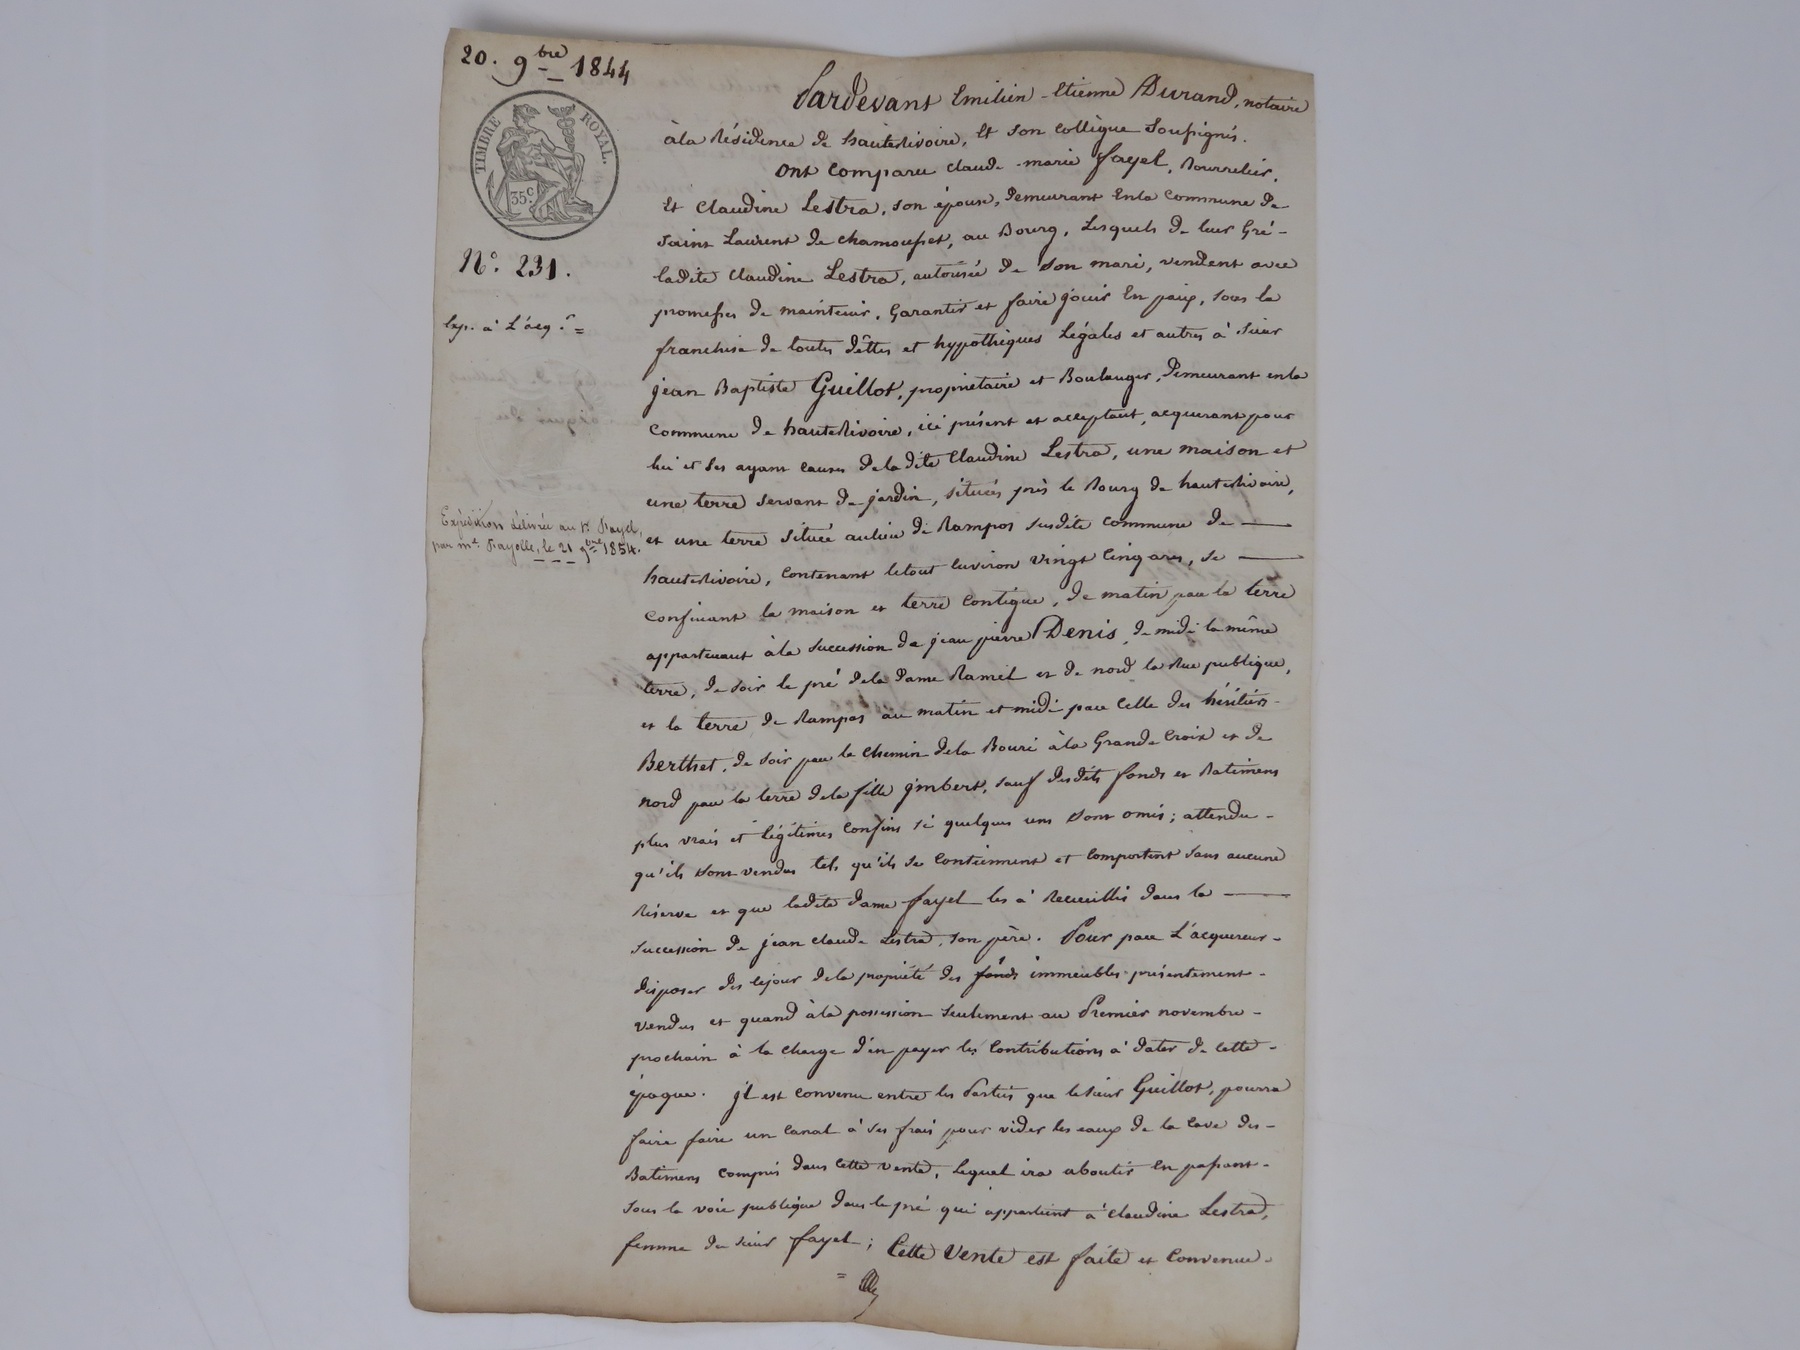 20. 9bre 1844
TIMBRE ROYAL.
35c.
No. 231.
Exp. à L'acq.r =
Expédition délivrée au Sr. Fayel,
par me. Fayolle, le 21 9bre 1854.
Pardevant Emilien-Etienne Durand, notaire
àla Résidence de hauterivoire, Et son collègue Soussignés.
Ont comparu claude-marie fayel, Bourrelier,
Et Claudine Lestra, son épouse, demeurant Enla commune de
saint Laurent de chamousset, au Bourg, Lesquels de leur Gré-
ladite Claudine Lestra, autorisée de son mari, vendent avec
promesses de maintenir, Garantir et faire jouir En paix, sous la
franchise de toutes dêttes et hypothèques Légales et autres à Sieur
jean Baptiste Guillot, propriétaire et Boulanger, demeurant enla
commune de hauterivoire, ici présent et acceptant, acquerant pour
lui et ses ayant causes dela dite Claudine Lestra, une maison et
une terre servant de jardin, situées près le Bourg de hauterivoire,
et une terre située aulieu de Rampos susdite commune de —
hauterivoire, contenant letout Environ vingt cinq ares, se —
confinant la maison et terre contigue, de matin par la terre
appartenant àla succession de jean pierre Denis, de midi la même
terre, de soir le pré dela dame Ramel et de nord la Rue publique,
et la terre de Rampos au matin et midi par celle des héritiers-
Berthet, de soir par le chemin dela Bouri àla Grande Croix et de
nord par la terre dela fille jmbert, sauf desdits fonds et Batimens
plus vrais et légitimes confins si quelques uns sont omis; attendu-
qu'ils sont vendus tels qu'ils se contiennent et comportent sans aucune
Réserve et que ladite dame fayel les à Recueillis dans la —
succession de jean claude Lestra, son père. Pour par L'acquereur-
disposer dès cejour dela propriété des fonds immeubles présentement-
vendus et quand àla possession seulement au Premier novembre-
prochain à la charge d'en payer les Contributions à dater de cette-
époque. jl est convenu entre les Parties que lesieur Guillot, pourra
faire faire un canal à ses frais pour vider les eaux de la cave des-
Batimens compris dans cette vente, Lequel ira aboutir En passant-
sous la voie publique dans le pré qui appartient à claudine Lestra,
femme du sieur fayel; Cette Vente est faite et Convenue-